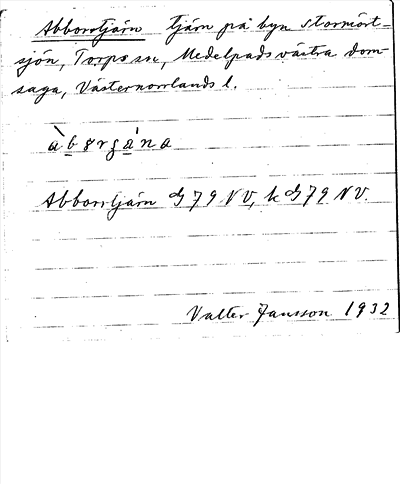 Abborrtjärn tjärn på byn Stormört-
sjön, Torps sn, Medelpads västra dom-
saga, Västernorrlands l.
Abborrtjärn G 79 NV, k G 79 NV.
Valter Jansson 1932